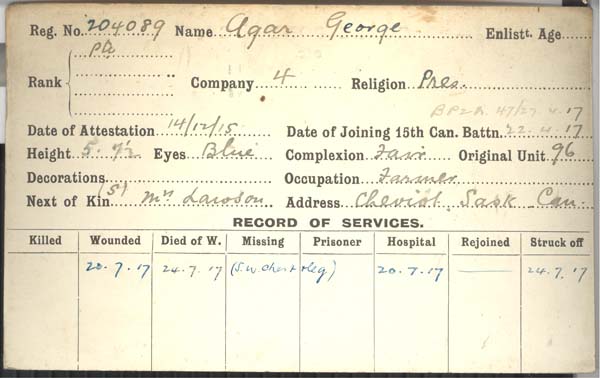 Reg. No. 204089 Name Agar George Enlistt. Age
Pte
Rank Company 4 Religion Pres.
47/27 4.17
Date of Attestation 14/12/15 Date of Joining 15th Can. Battn. 22.4.17
Height 5. 7½ Eyes Blue Complexion Fair Original Unit 96
Decorations Occupation Farmer
Next of Kin (S) Mrs Lawson Address Cheviot Sask Can.
RECORD OF SERVICES.
Killed Wounded Died of W. Missing Prisoner Hospital Rejoined Struck off
20.7.17 24.7.17 (S.W. Chest & leg) 20.7.17 24.7.17